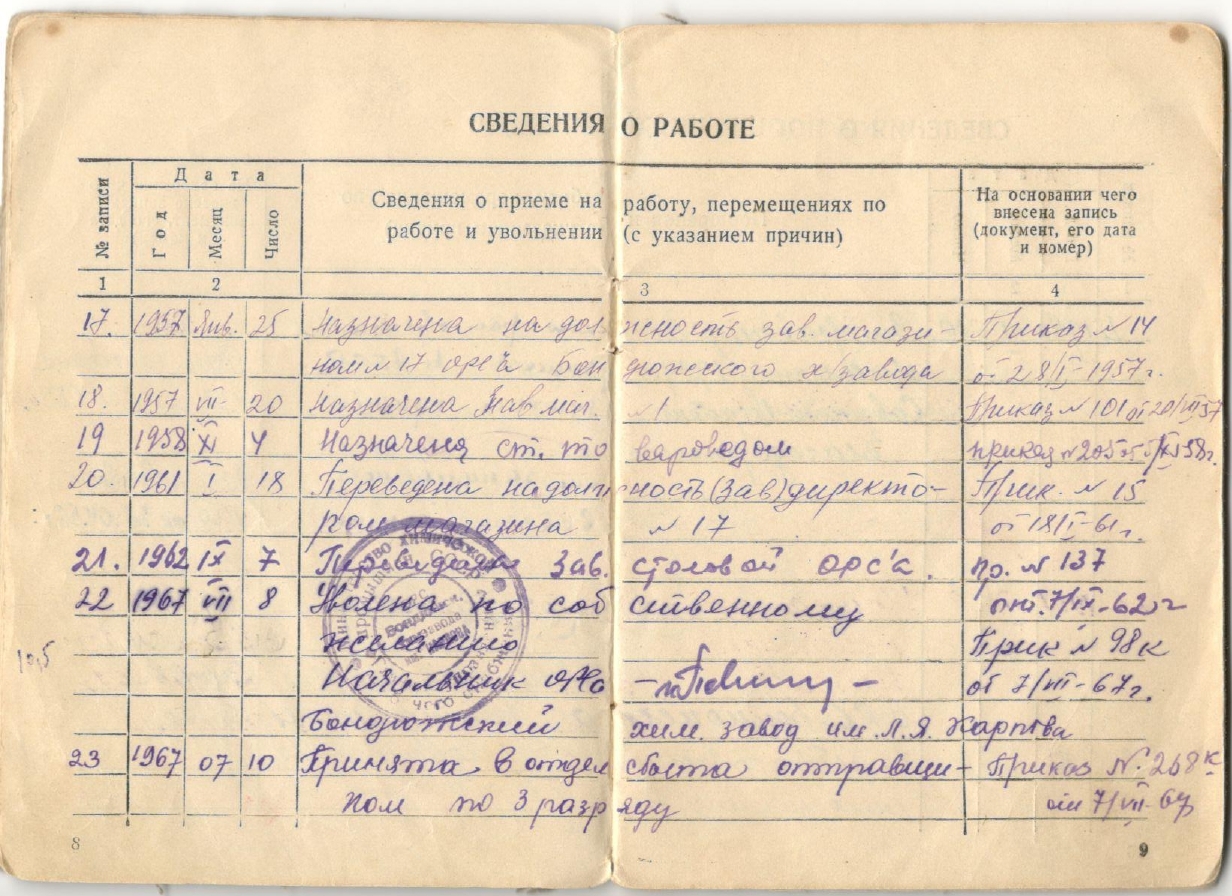 СВЕДЕНИЯ О РАБОТЕ
№ записи
Дата
Год
Месяц
Число
Сведения о приеме на работу, перемещениях по
работе и увольнении (с указанием причин)
На основании чего
внесена запись
(документ, его дата
и номер)
1 2 3 4
17. 1957 Янв. 25 Назначена на должность зав. магази- Приказ № 14
ном № 17 орс'а Бондюжского х/завода от 28/I-1957г.
18. 1957 VII 20 Назначена Зав маг. №1 Приказ № 101 от 20/VII 57
19 1958 XI 4 Назначена ст. товароведом приказ № 205 от 5/XI 58г.
20. 1961 I 18 Переведена на должность (зав) директо- Прик. № 15
ром магазина № 17 от 18/I-61г.
21. 1962 IX 7 Переведена Зав. столовой орс'а. пр. № 137
22 1967 VII 8 Уволена по собственному от 7/IX-62г
желанию Прик № 98к
Начальник орса от 7/VII-67г.
Бондюжский хим. завод им Л.Я. Карпова
23 1967 07 10 Принята в отдел сбыта отправщи- Приказ № 268к
ком по 3 разряду от 7/VII-67
10,5
8
9